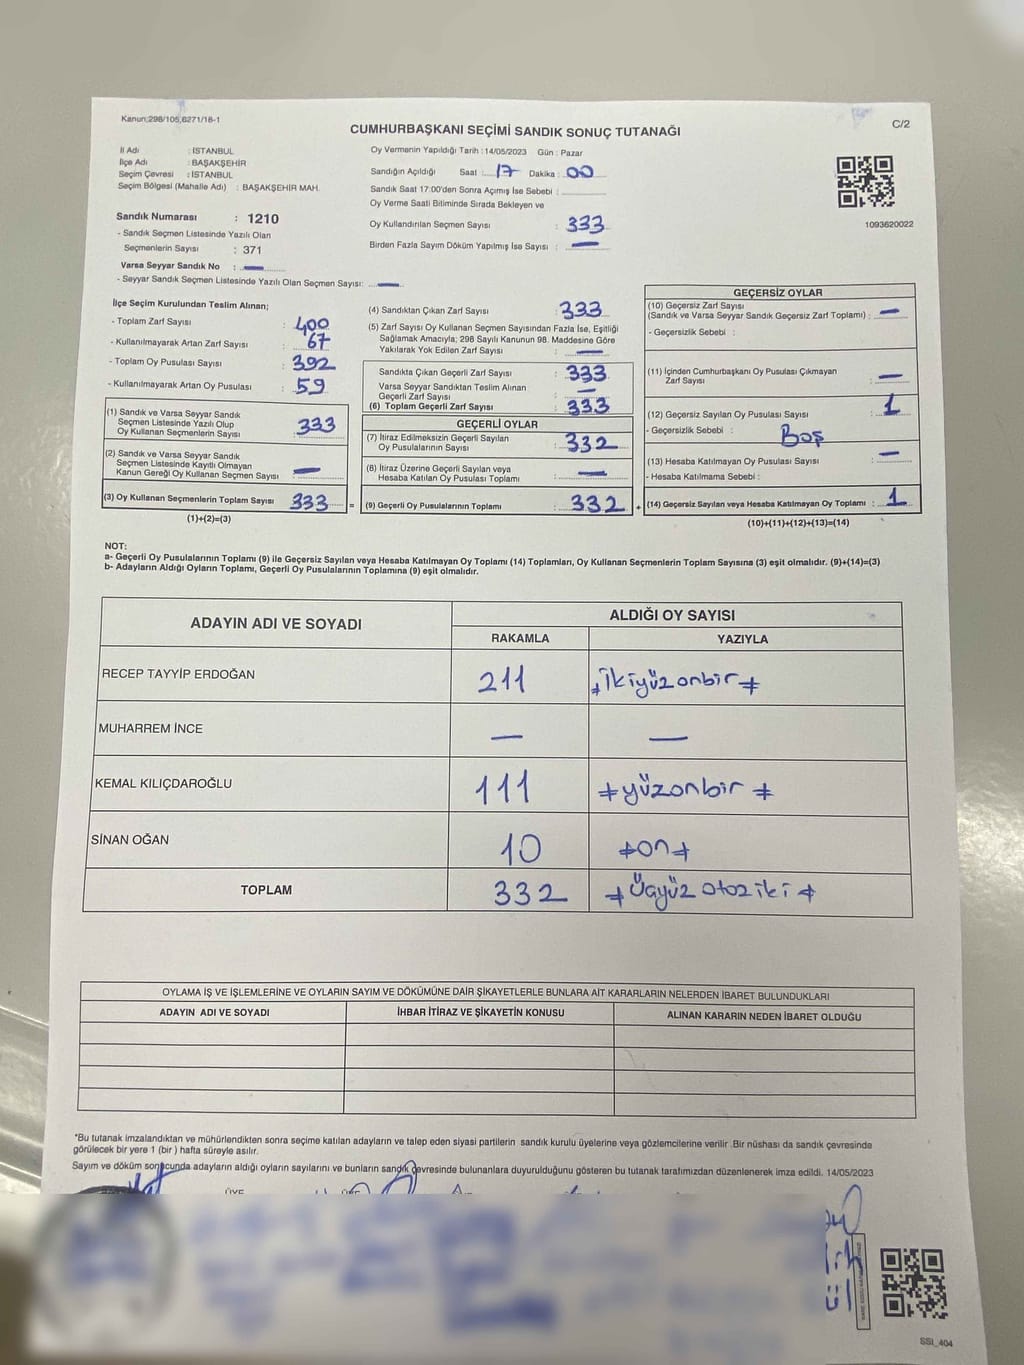 Kanun:298/105,6271/18-1
C/2
CUMHURBAŞKANI SEÇİMİ SANDIK SONUÇ TUTANAĞI
İl Adı : İSTANBUL
İlçe Adı : BAŞAKŞEHİR
Seçim Çevresi : İSTANBUL
Seçim Bölgesi (Mahalle Adı) : BAŞAKŞEHİR MAH.
Sandık Numarası : 1210
- Sandık Seçmen Listesinde Yazılı Olan
Seçmenlerin Sayısı : 371
Varsa Seyyar Sandık No : —
- Seyyar Sandık Seçmen Listesinde Yazılı Olan Seçmen Sayısı: —
Oy Vermenin Yapıldığı Tarih : 14/05/2023 Gün : Pazar
Sandığın Açıldığı Saat : 17 Dakika : 00
Sandık Saat 17:00'den Sonra Açımış İse Sebebi :
Oy Verme Saati Bitiminde Sırada Bekleyen ve
Oy Kullandırılan Seçmen Sayısı : 333
Birden Fazla Sayım Döküm Yapılmış İse Sayısı : —
1093620022
İlçe Seçim Kurulundan Teslim Alınan;
- Toplam Zarf Sayısı : 400
- Kullanılmayarak Artan Zarf Sayısı : 67
- Toplam Oy Pusulası Sayısı : 392
- Kullanılmayarak Artan Oy Pusulası : 59
(1) Sandık ve Varsa Seyyar Sandık
Seçmen Listesinde Yazılı Olup
Oy Kullanan Seçmenlerin Sayısı : 333
(2) Sandık ve Varsa Seyyar Sandık
Seçmen Listesinde Kayıtlı Olmayan
Kanun Gereği Oy Kullanan Seçmen Sayısı : —
(3) Oy Kullanan Seçmenlerin Toplam Sayısı : 333 =
(1)+(2)=(3)
(4) Sandıktan Çıkan Zarf Sayısı : 333
(5) Zarf Sayısı Oy Kullanan Seçmen Sayısından Fazla İse, Eşitliği
Sağlamak Amacıyla; 298 Sayılı Kanunun 98. Maddesine Göre
Yakılarak Yok Edilen Zarf Sayısı : —
Sandıkta Çıkan Geçerli Zarf Sayısı : 333
Varsa Seyyar Sandıktan Teslim Alınan
Geçerli Zarf Sayısı : —
(6) Toplam Geçerli Zarf Sayısı : 333
GEÇERLİ OYLAR
(7) İtiraz Edilmeksizin Geçerli Sayılan
Oy Pusulalarının Sayısı : 332
(8) İtiraz Üzerine Geçerli Sayılan veya
Hesaba Katılan Oy Pusulası Toplamı : —
(9) Geçerli Oy Pusulalarının Toplamı : 332 +
GEÇERSİZ OYLAR
(10) Geçersiz Zarf Sayısı
(Sandık ve Varsa Seyyar Sandık Geçersiz Zarf Toplamı) : —
- Geçersizlik Sebebi :
(11) İçinden Cumhurbaşkanı Oy Pusulası Çıkmayan
Zarf Sayısı : —
(12) Geçersiz Sayılan Oy Pusulası Sayısı : 1
- Geçersizlik Sebebi : Boş
(13) Hesaba Katılmayan Oy Pusulası Sayısı : —
- Hesaba Katılmama Sebebi :
(14) Geçersiz Sayılan veya Hesaba Katılmayan Oy Toplamı : 1
(10)+(11)+(12)+(13)=(14)
NOT:
a- Geçerli Oy Pusulalarının Toplamı (9) ile Geçersiz Sayılan veya Hesaba Katılmayan Oy Toplamı (14) Toplamları, Oy Kullanan Seçmenlerin Toplam Sayısına (3) eşit olmalıdır. (9)+(14)=(3)
b- Adayların Aldığı Oyların Toplamı, Geçerli Oy Pusulalarının Toplamına (9) eşit olmalıdır.
ADAYIN ADI VE SOYADI
ALDIĞI OY SAYISI
RAKAMLA YAZIYLA
RECEP TAYYİP ERDOĞAN 211 ikiyüzonbir
MUHARREM İNCE — —
KEMAL KILIÇDAROĞLU 111 yüzonbir
SİNAN OĞAN 10 on
TOPLAM 332 Üçyüz otoziki
OYLAMA İŞ VE İŞLEMLERİNE VE OYLARIN SAYIM VE DÖKÜMÜNE DAİR ŞİKAYETLERLE BUNLARA AİT KARARLARIN NELERDEN İBARET BULUNDUKLARI
ADAYIN ADI VE SOYADI İHBAR İTİRAZ VE ŞİKAYETİN KONUSU ALINAN KARARIN NEDEN İBARET OLDUĞU
*Bu tutanak imzalandıktan ve mühürlendikten sonra seçime katılan adayların ve talep eden siyasi partilerin sandık kurulu üyelerine veya gözlemcilerine verilir .Bir nüshası da sandık çevresinde
görülecek bir yere 1 (bir ) hafta süreyle asılır.
Sayım ve döküm sonucunda adayların aldığı oyların sayılarını ve bunların sandık çevresinde bulunanlara duyurulduğunu gösteren bu tutanak tarafımızdan düzenlenerek imza edildi. 14/05/2023
ÜYE
SSI_404